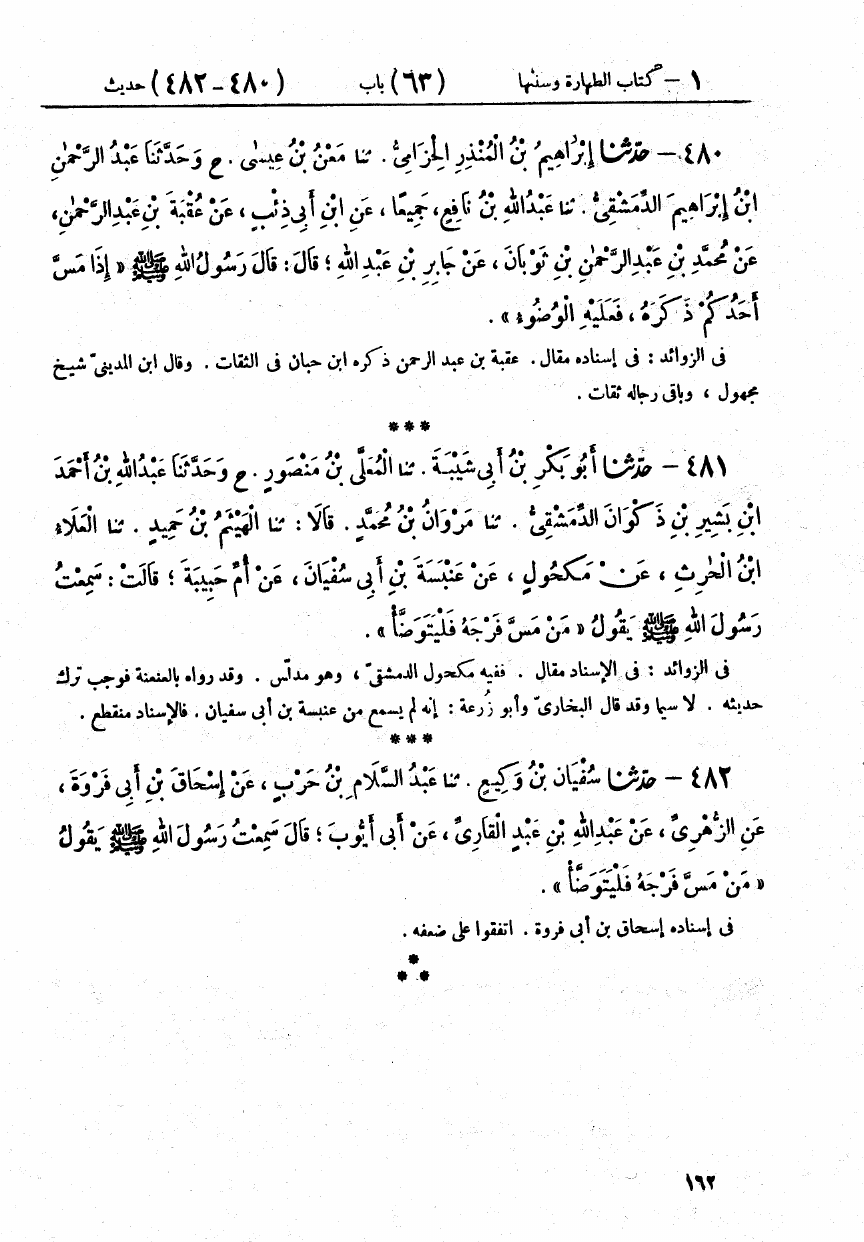 ١ – كتاب الطهارة وسننها (٦٣) باب (٤٨٠ – ٤٨٢) حديث
٤٨٠ – حدّثنا إِبْرَاهِيمُ بْنُ الْمُنْذِرِ الْحِزَامِيُّ . ثنا مَعْنُ بْنُ عِيسَى . ح وَحَدَّثَنَا عَبْدُ الرَّحْمٰنِ
ابْنُ إِبْرَاهِيمَ الدِّمَشْقِيُّ . ثنا عَبْدُاللهِ بْنُ نَافِعٍ، جَمِيعًا ، عَنِ ابْنِ أَبِي ذِئْبٍ ، عَنْ عُقْبَةَ بْنِ عَبْدِالرَّحْمٰنِ،
عَنْ مُحَمَّدِ بْنِ عَبْدِالرَّحْمٰنِ بْنِ ثَوْبَانَ ، عَنْ جَابِرِ بْنِ عَبْدِ اللهِ ؛ قَالَ : قَالَ رَسُولُ اللهِ ﷺ « إِذَا مَسَّ
أَحَدُكُمْ ذَكَرَهُ ، فَعَلَيْهِ الْوُضُوءُ » .
فى الزوائد : فى إسناده مقال . عقبة بن عبد الرحمن ذكره ابن حبان فى الثقات . وقال ابن المدينىّ شيخ
مجهول ، وباقى رجاله ثقات .
***
٤٨١ – حدّثنا أَبُو بَكْرِ بْنُ أَبِى شَيْبَةَ . ثنا الْمُعَلَّى بْنُ مَنْصُورٍ . ح وَحَدَّثَنَا عَبْدُاللهِ بْنُ أَحْمَدَ
ابْنِ بَشِيرِ بْنِ ذَكْوَانَ الدِّمَشْقِيُّ . ثنا مَرْوَانُ بْنُ مُحَمَّدٍ . قَالَا : ثنا الْهَيْثَمُ بْنُ حُمَيْدٍ . ثنا الْعَلَاءُ
ابْنُ الْحٰرِثِ ، عَنْ مَكْحُولٍ ، عَنْ عَنْبَسَةَ بْنِ أَبِى سُفْيَانَ ، عَنْ أُمِّ حَبِيبَةَ ؛ قَالَتْ : سَمِعْتُ
رَسُولَ اللهِ ﷺ يَقُولُ « مَنْ مَسَّ فَرْجَهُ فَلْيَتَوَضَّأْ » .
فى الزوائد : فى الإسناد مقال . ففيه مكحول الدمشقىّ ، وهو مدلّس . وقد رواه بالعنعنة فوجب ترك
حديثه . لا سيما وقد قال البخارىّ وأبو زُرعة : إنه لم يسمع من عنبسة بن أبى سفيان . فالإسناد منقطع .
***
٤٨٢ – حدّثنا سُفْيَانُ بْنُ وَكِيعٍ . ثنا عَبْدُ السَّلَامِ بْنُ حَرْبٍ ، عَنْ إِسْحَاقَ بْنِ أَبِى فَرْوَةَ ،
عَنِ الزُّهْرِىِّ ، عَنْ عَبْدِاللهِ بْنِ عَبْدٍ الْقَارِىِّ ، عَنْ أَبِى أَيُّوبَ ؛ قَالَ سَمِعْتُ رَسُولَ اللهِ ﷺ يَقُولُ
« مَنْ مَسَّ فَرْجَهُ فَلْيَتَوَضَّأْ » .
فى إسناده إسحاق بن أبى فروة . اتفقوا على ضعفه .
*
* *
١٦٢